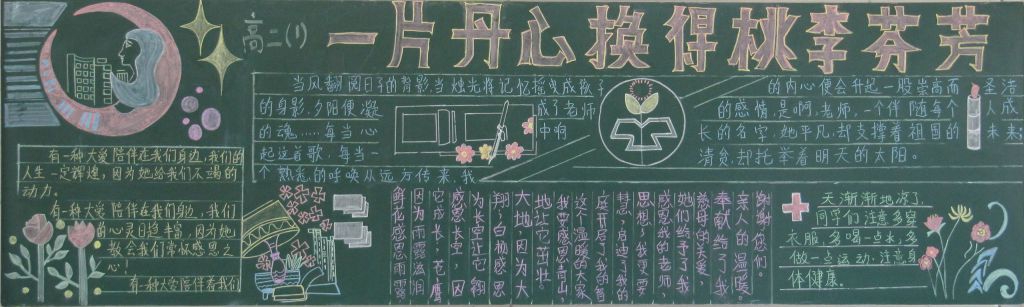 高二(1)
一片丹心换得桃李芬芳
有一种大爱陪伴在我们身边,我们的
人生一定辉煌,因为她给我们不竭的
动力。
有一种大爱陪伴在我们身边,我们
的心灵日趋丰富,因为她
教会我们常怀感恩之
心!
有一种大爱陪伴着我们
当风翻阅日子的背影,当烛光将记忆摇曳成孩子
的身影,夕阳便凝
成了老师
的魂……每当心
中响
起这首歌,每当一
个熟悉的呼唤从远方传来,我
的内心便会升起一股崇高而
圣洁
的感情,是啊,老师,一个伴随每个
人成
长的名字,她平凡,却支撑着祖国的
未来;
清贫,却托举着明天的太阳。
谢谢你们。
亲人的温暖。
奉献给了我
慈母的关爱,
她们给予了我
感恩我的老师,
思想,我要
慧,启迪了我的
庭开启了我的智
这个温暖的大家
我要感恩青山,
地让它茁壮。
大地,因为大
翔;白杨感恩
为长空让它
感恩长空,因
它成长;苍鹰
因为雨露滋润
鲜花感恩雨露,
天渐渐地凉了,
同学们注意多穿
衣服,多喝一点水,多
做一点运动,注意身
体健康。